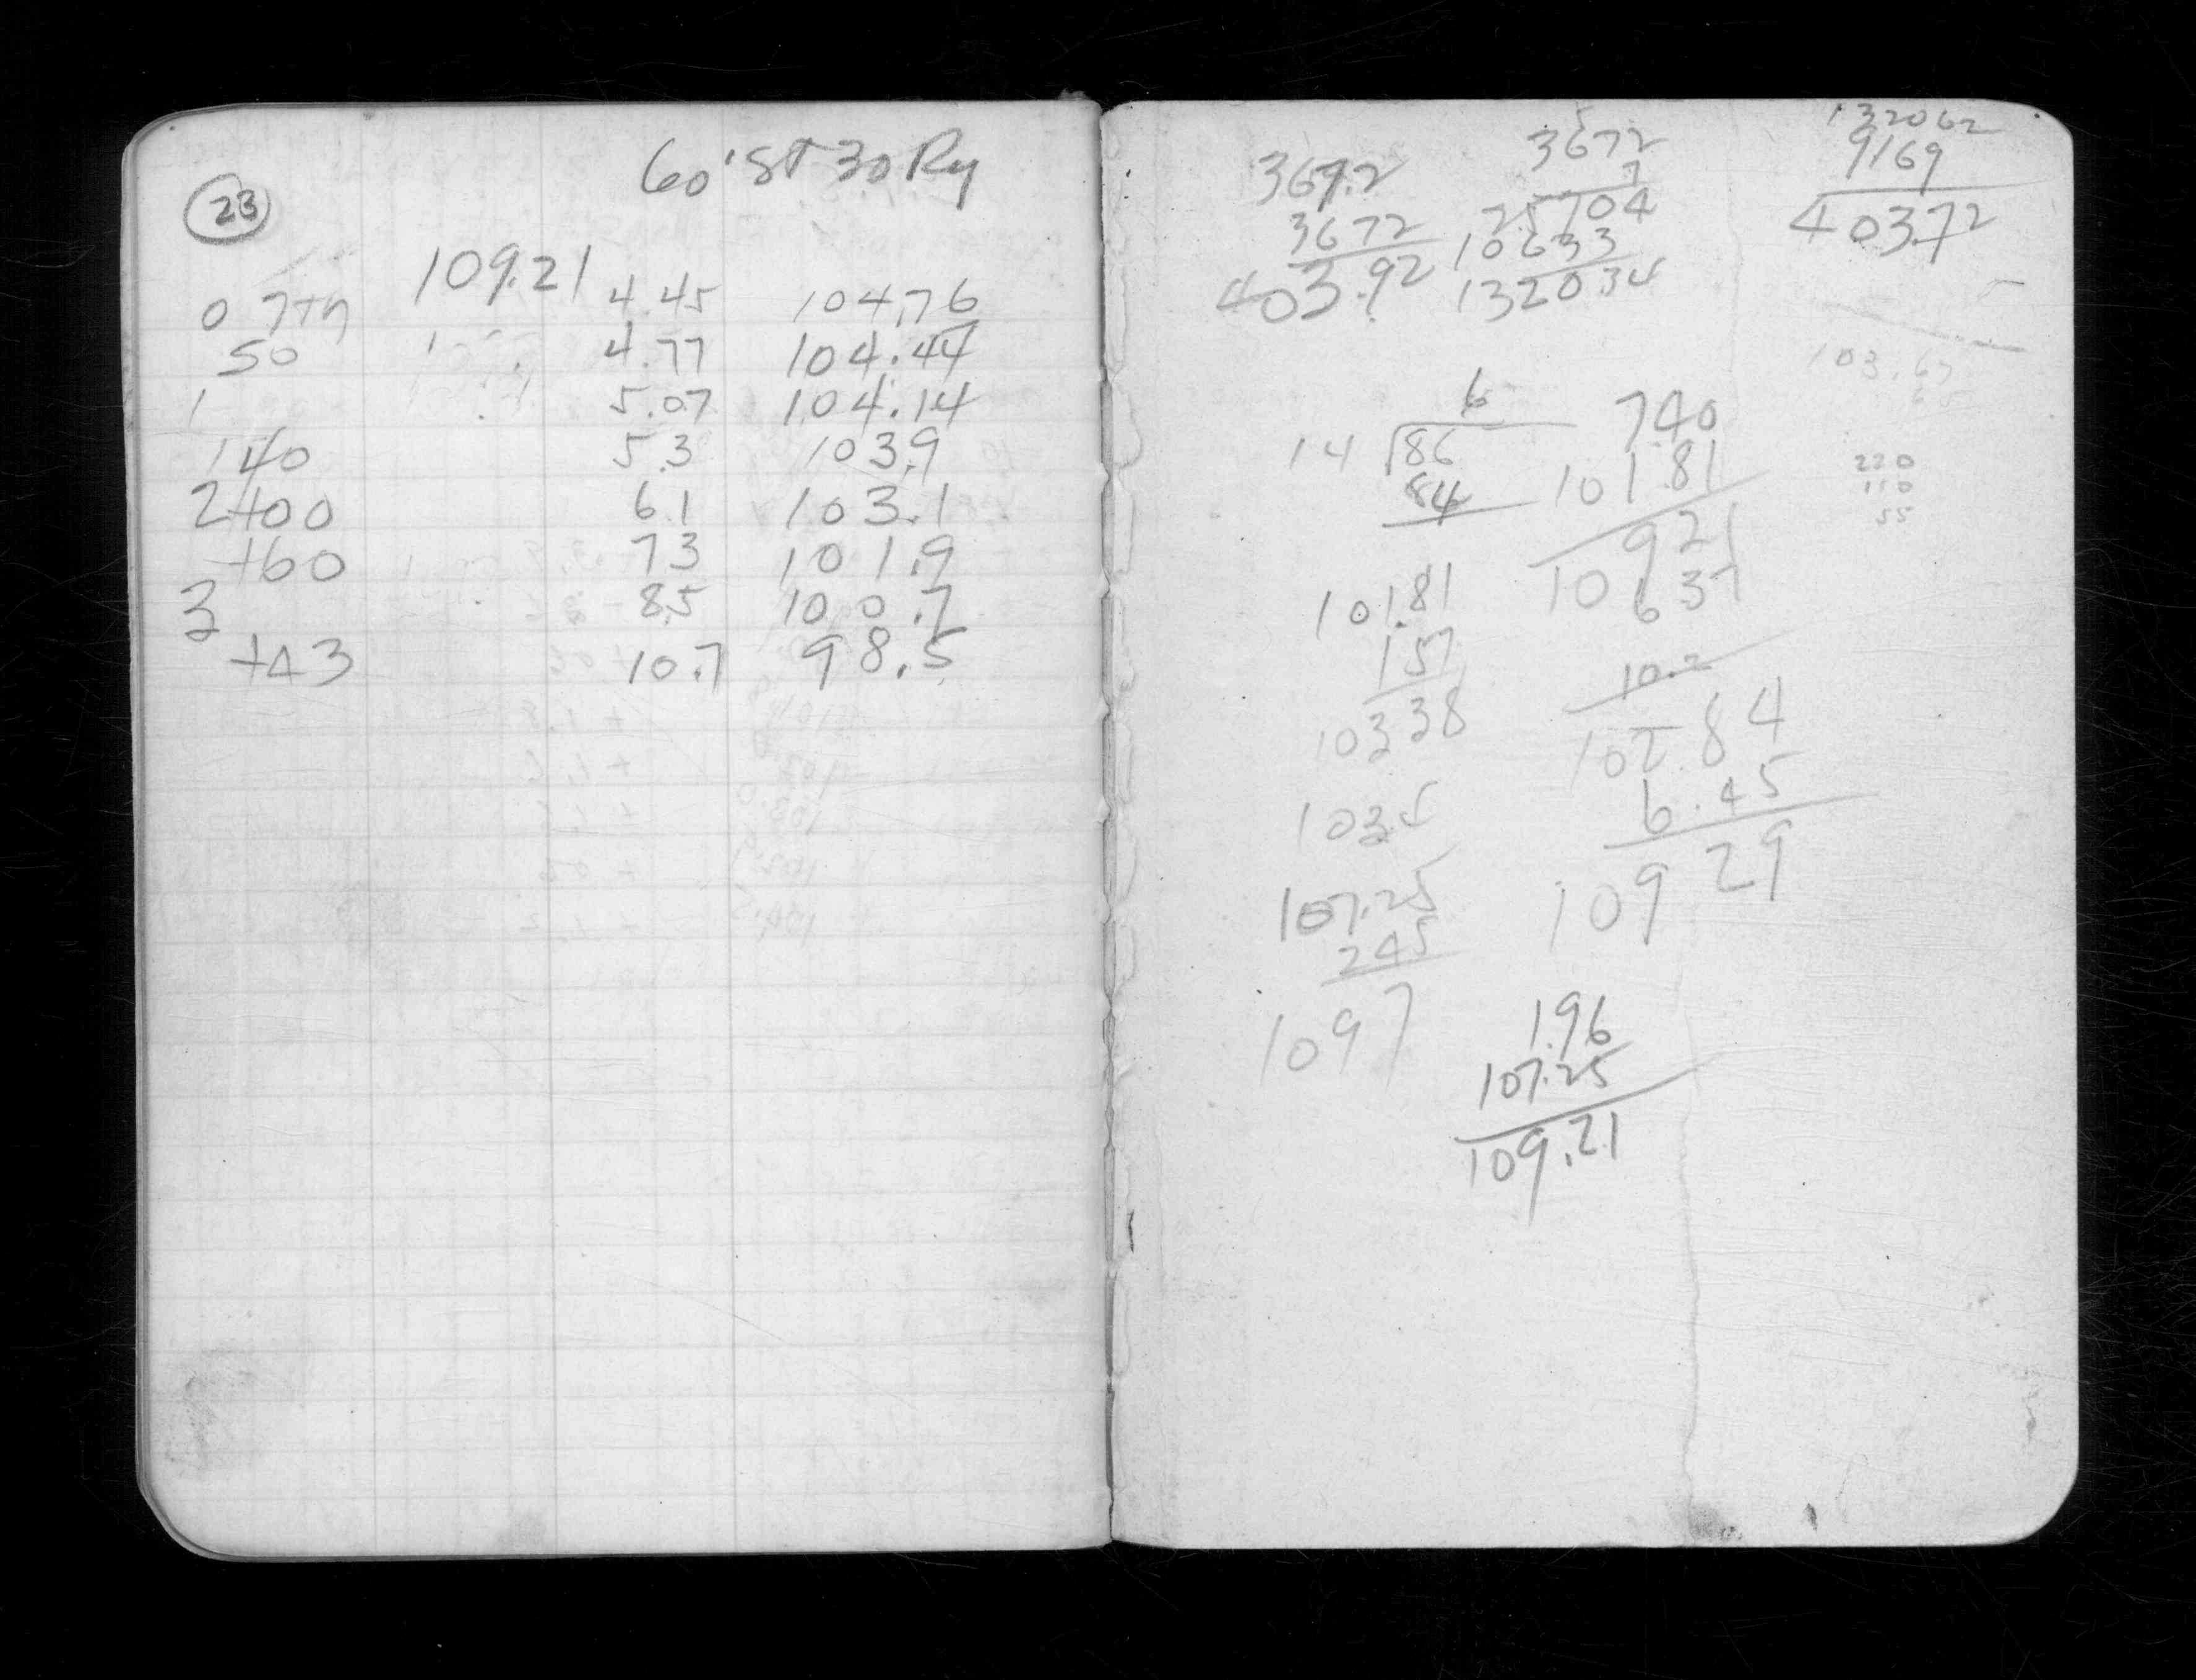 23
60' St 30 Ry
109.21
0 7th 4.45 104.76
50 4.77 104.44
1 5.07 104.14
140 5.3 103.9
2+00 6.1 103.1
+60 7.3 101.9
3 8.5 100.7
+43 10.7 98.5
367.2
3672
403.92
3672
7
25704
10633
132034
132062
9169
40372
103.67
6
14 86
84
740
101.81
10921
637
220
110
55
101.81
157
10338
10.2
102.84
6.45
109 29
103.5
107.25
245
1097
1.96
107.25
109.21